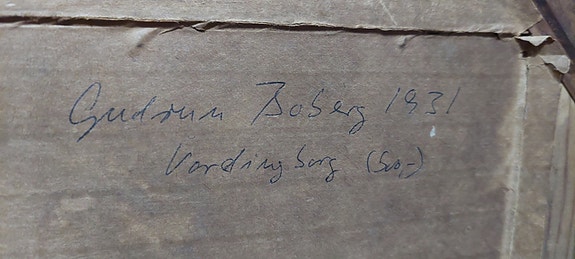 Gudrun Boberg 1931
Vordingborg (500,-)